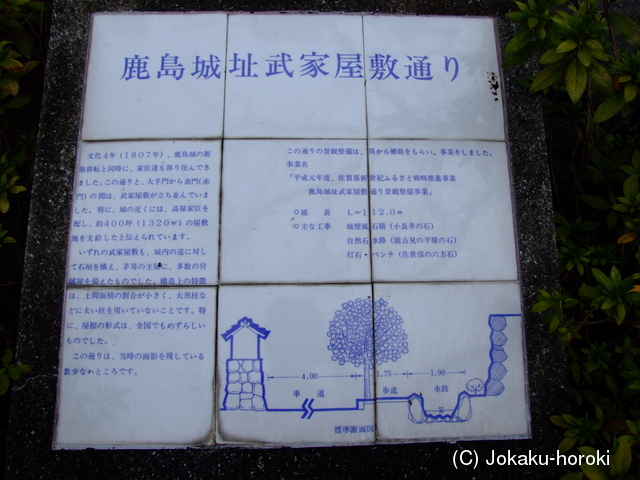 鹿島城址武家屋敷通り
文化4年(1807年)、鹿島城の新
築移転と同時に、家臣達も移り住んで
きました。この通りと、大手門から表門(赤
門)の間は、武家屋敷が立ち並んでい
ました。特に、城の近くには、高禄家臣を
配し、約400坪(1320㎡)の屋敷
地を支給したと伝えられています。
いずれの武家屋敷も、城内の道に対し
て石垣を構え、茅葺の主屋に、多数の付
属屋を備えたものでした。構造上の特徴
は、土間面積の割合が小さく、大黒柱な
どに太い柱を用いていないことです。特
に、屋根の形式は、全国でもめずらしい
ものでした。
この通りは、当時の面影を残している
数少なかところです。
この通りの景観整備は、県から補助をもらい、事業をしました。
事業名
「平成元年度、佐賀県新世紀ふるさと戦略推進事業
鹿島城址武家屋敷通り景観整備事業」
○延 長 L=112.0m
○主な工事 城壁風石積(小長井の石)
自然石水路(龍古見の平原の石)
灯石・ベンチ(佐世保の六方石)
4.00 1.75 1.90
車道 歩道 水路
標準断面図
(C) Jokaku-horoki